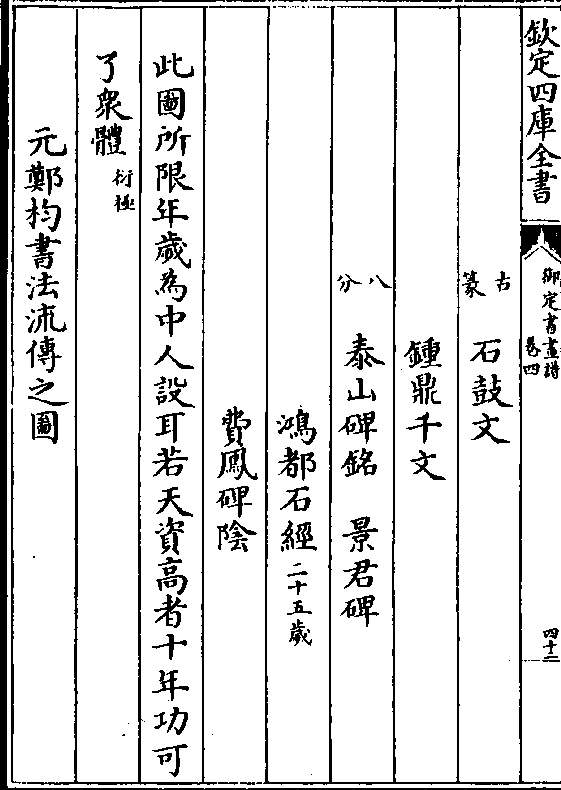 欽定四庫全書
御定書畫譜
卷四
四十二
古篆
石鼓文
鍾鼎千文
八分
泰山碑銘 景君碑
鴻都石經 二十五歲
費鳳碑陰
此圖所限年歲為中人設耳若天資高者十年功可
了衆體 衍極
元鄭杓書法流傳之圖